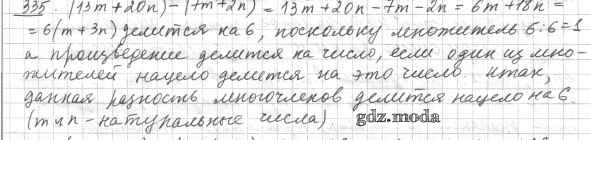 335. (13m+20n)-(7m+2n)=13m+20n-7m-2n=6m+18n=
=6(m+3n) делится на 6, поскольку множитель 6:6=1
а произведение делится на число, если один из мно-
жителей нацело делится на это число. Итак,
данная разность многочленов делится нацело на 6.
(m и n - натуральные числа).
gdz.moda